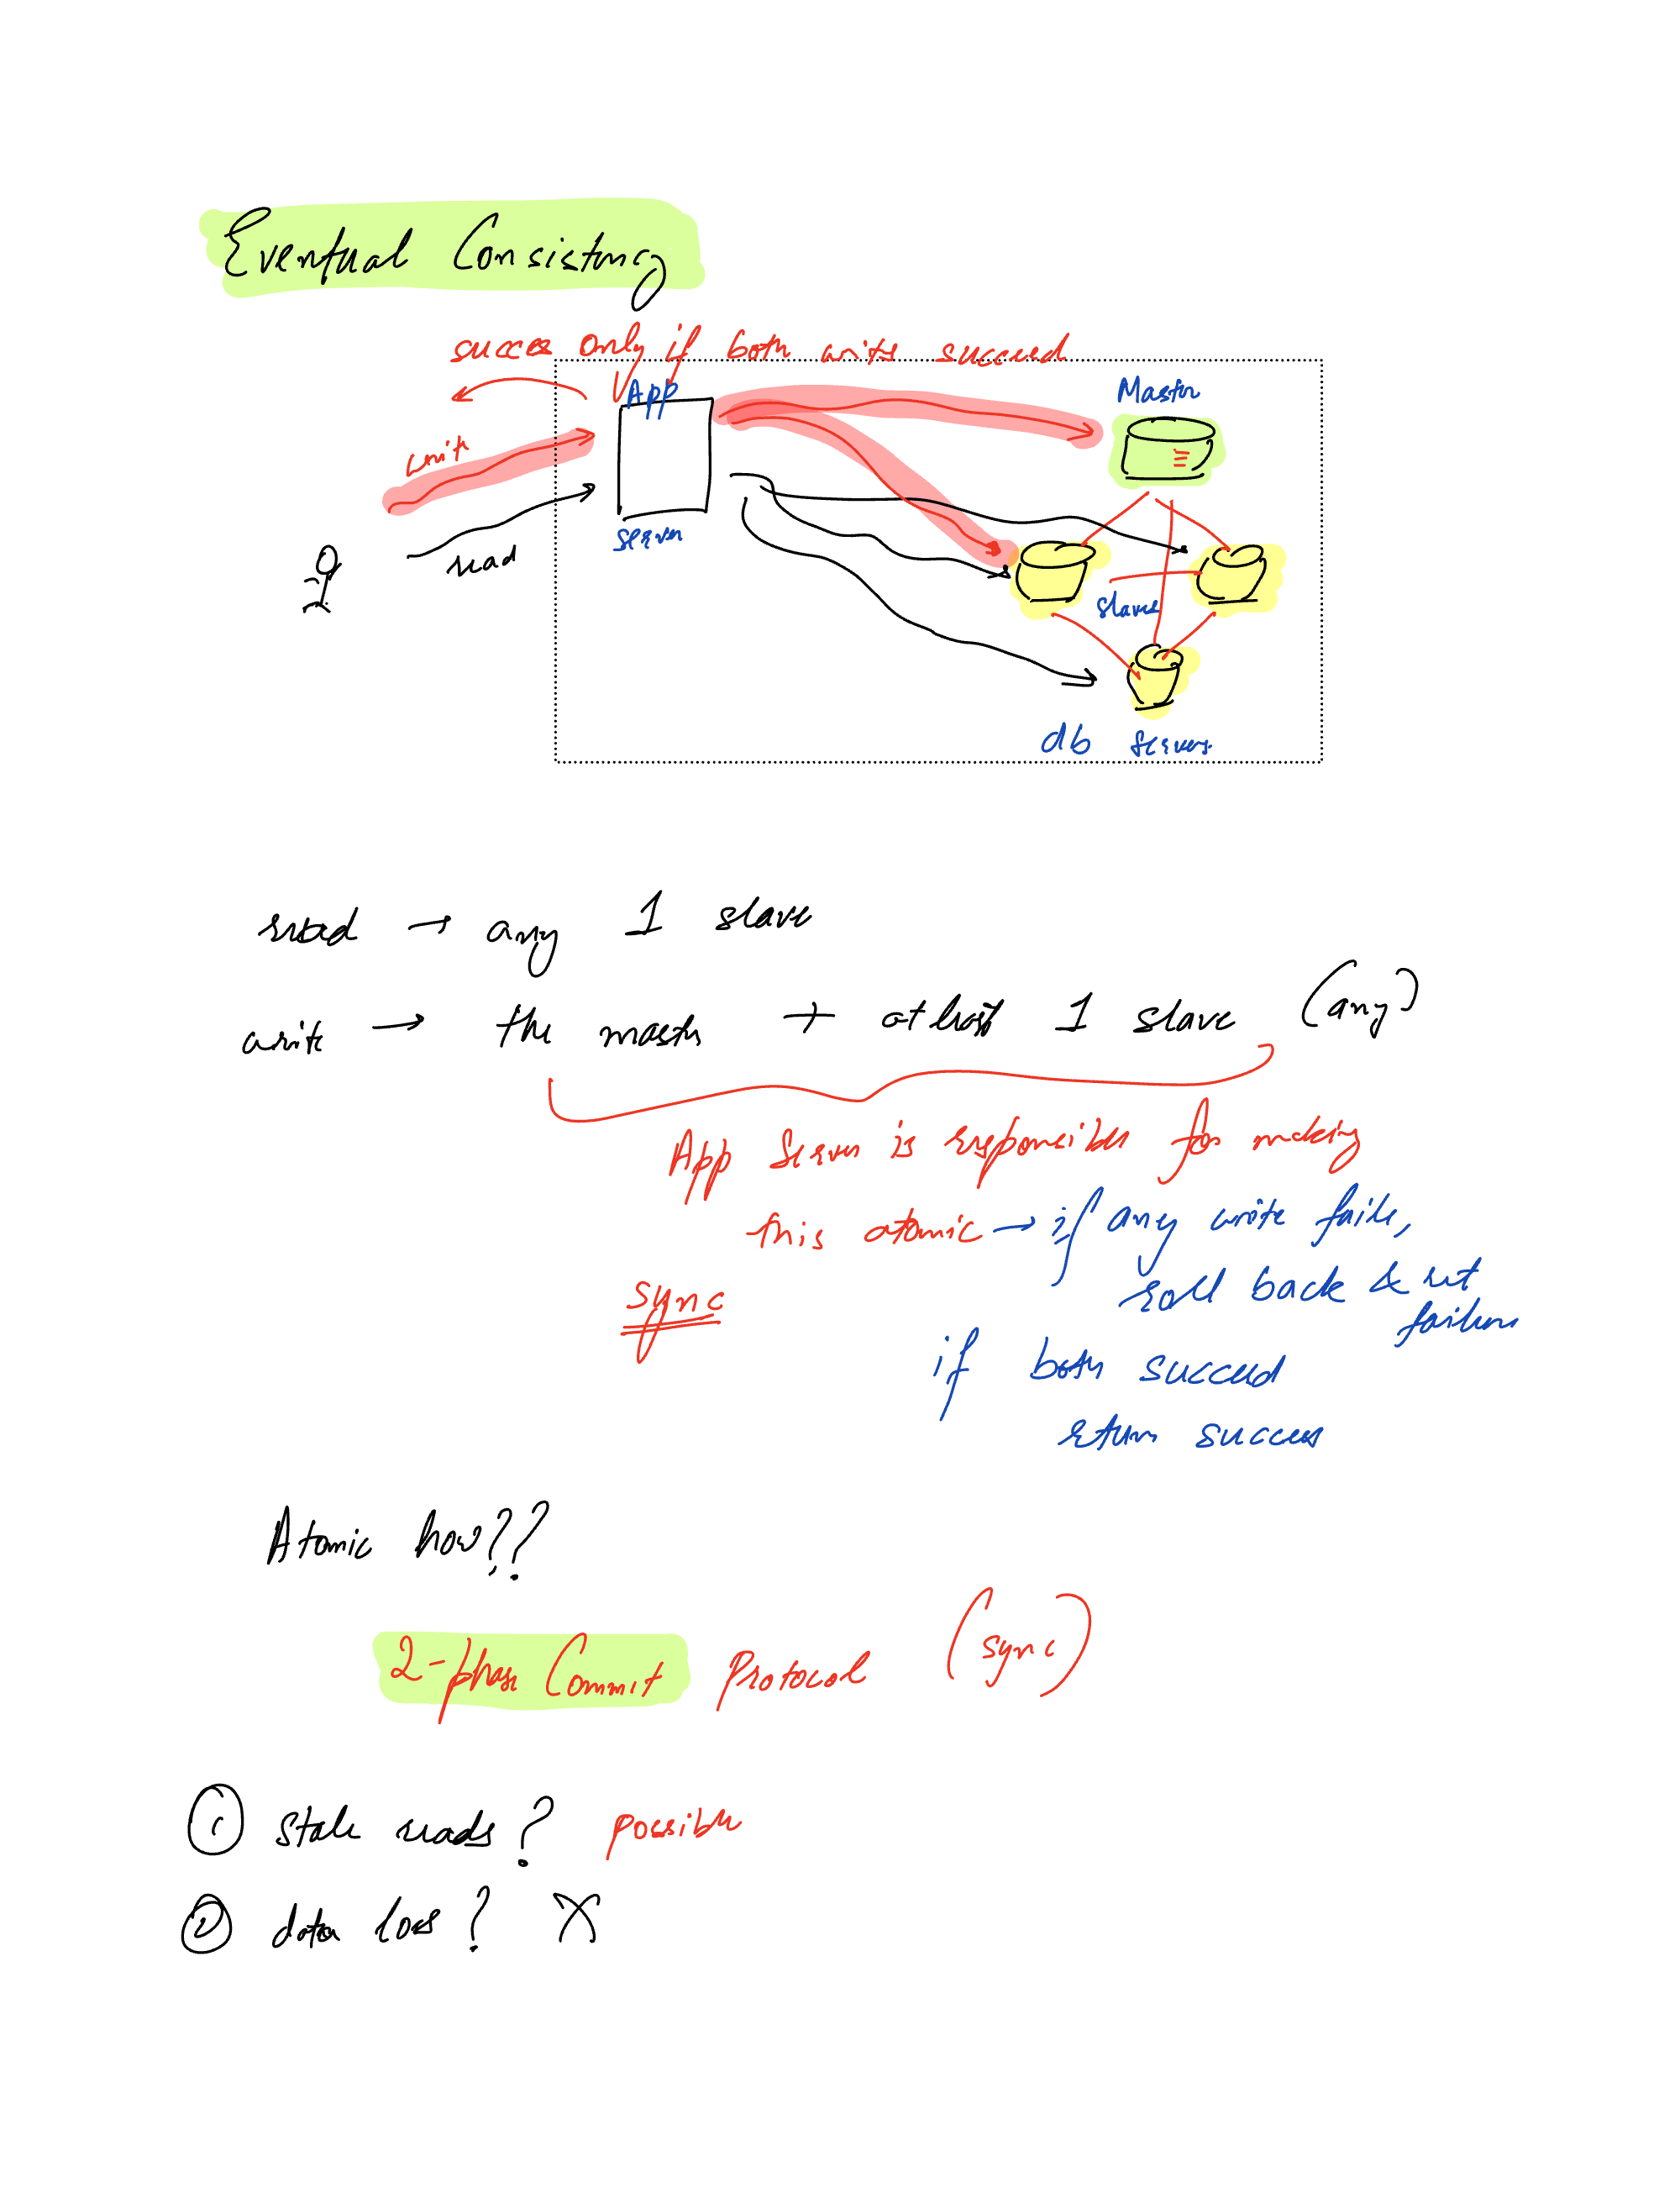 Eventual Consistency
success only if both write succeed
App
Master
write
Server
read
slave
db servers
read → any 1 slave
write → the master + atleast 1 slave (any)
App Server is responsible for making
this atomic → if any write fails,
roll back & ret
failure
sync
if both succeed
return success
Atomic how??
2-phase Commit Protocol (sync)
① Stale reads? possible
② data loss? X